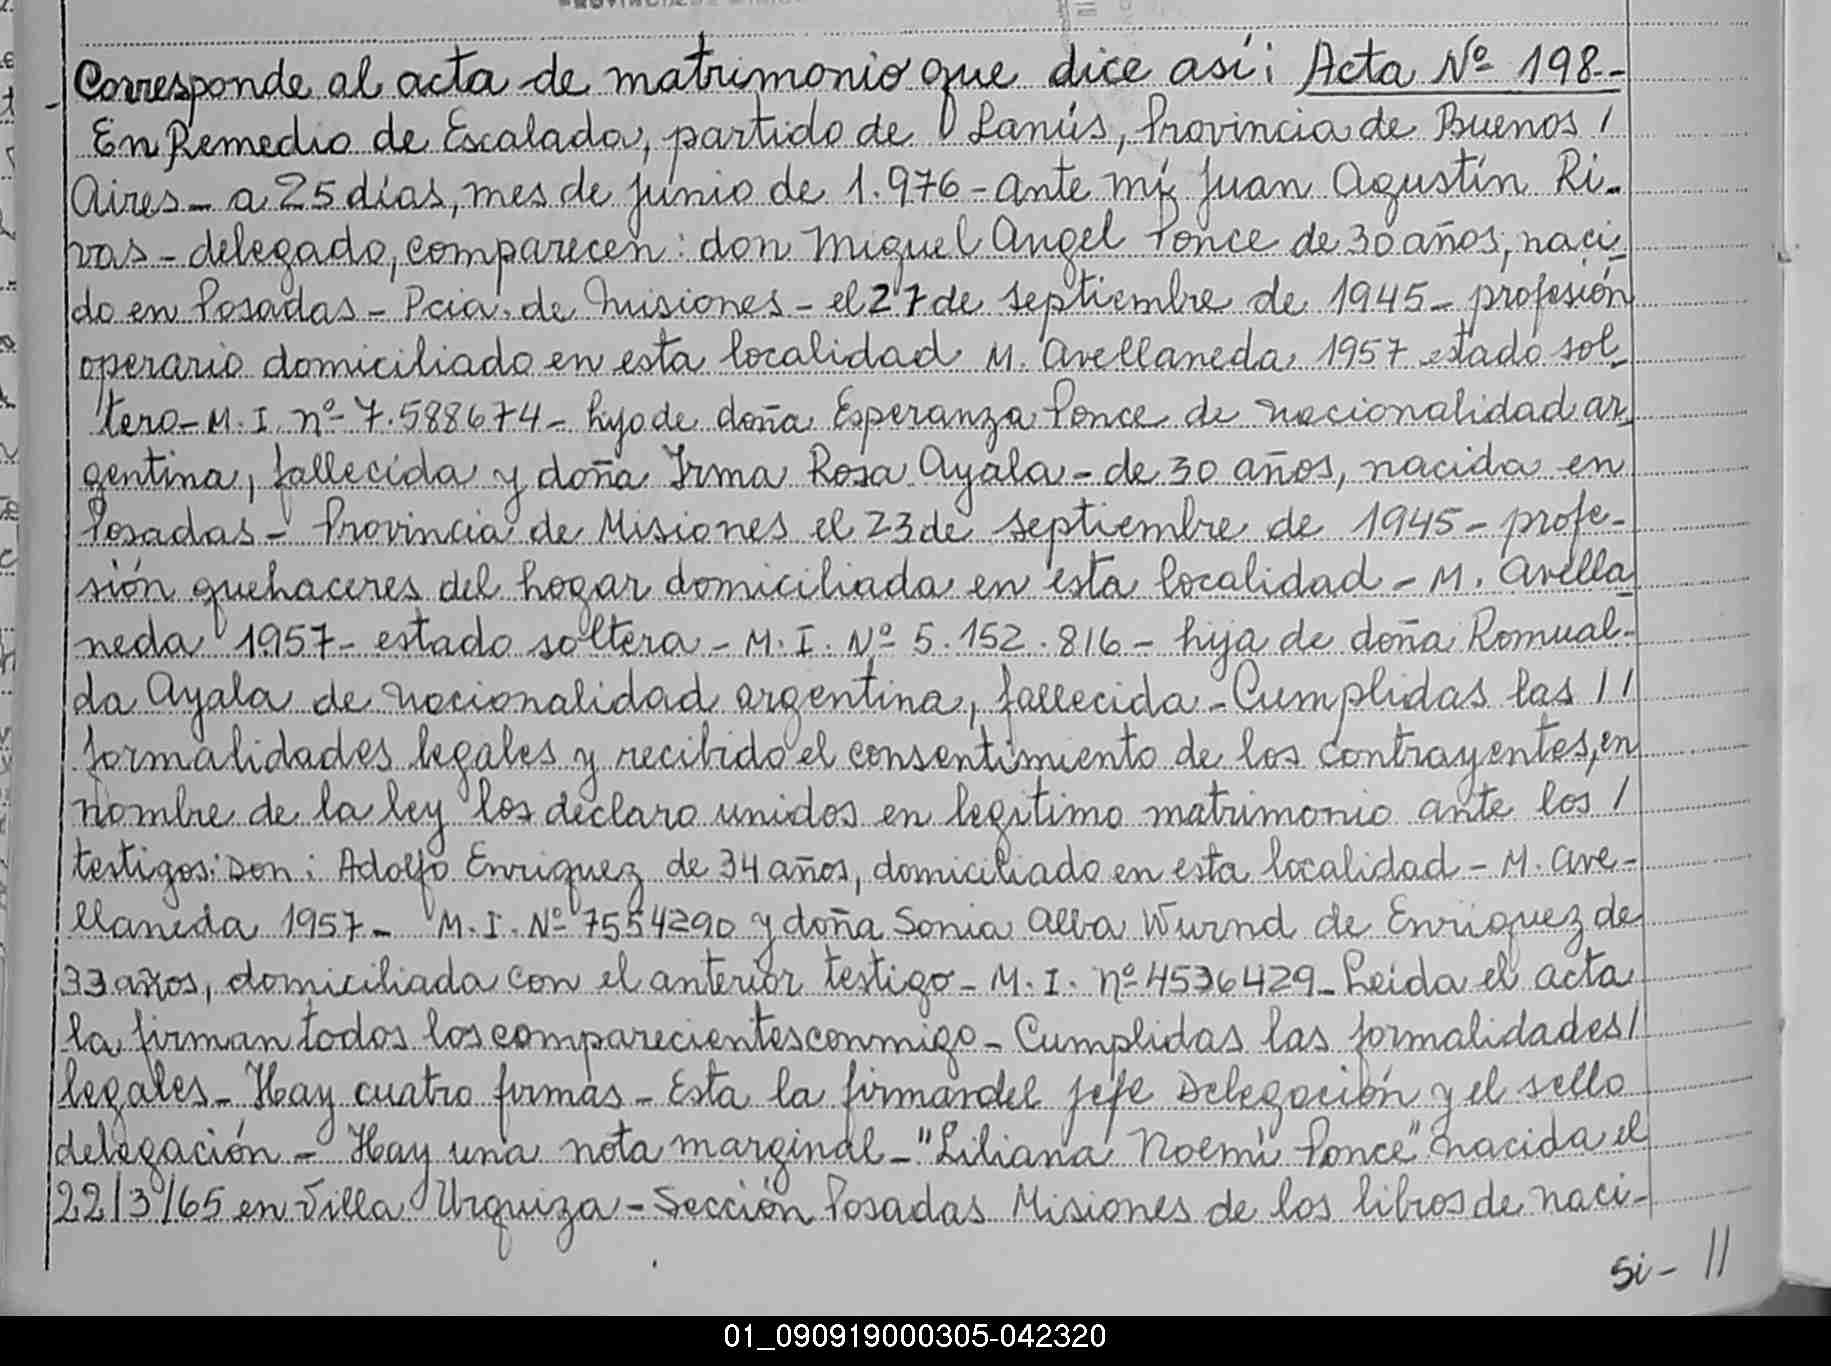 Corresponde al acta de matrimonio que dice así: Acta Nº 198.-
En Remedio de Escalada, partido de Lanús, Provincia de Buenos /
Aires - a 25 días, mes de junio de 1.976 - ante mí Juan Agustín Ri-
vas - delegado, comparecen: don Miguel Angel Ponce de 30 años, naci-
do en Posadas - Pcia. de Misiones - el 27 de septiembre de 1945 - profesión
operario domiciliado en esta localidad M. Avellaneda 1957 estado sol-
tero - M. I. nº 7.588674 - hijo de doña Esperanza Ponce de nacionalidad ar-
gentina, fallecida y doña Irma Rosa Ayala - de 30 años, nacida en
Posadas - Provincia de Misiones el 23 de septiembre de 1945 - profe-
sión quehaceres del hogar domiciliada en esta localidad - M. Avella-
neda 1957 - estado soltera - M. I. Nº 5.152.816 - hija de doña Romual-
da Ayala de nacionalidad argentina, fallecida - Cumplidas las //
formalidades legales y recibido el consentimiento de los contrayentes, en
nombre de la ley los declaro unidos en legítimo matrimonio ante los /
testigos: Don: Adolfo Enriquez de 34 años, domiciliado en esta localidad - M. Ave-
llaneda 1957 - M. I. Nº 7554290 y doña Sonia Alba Wurnd de Enriquez de
33 años, domiciliada con el anterior testigo - M. I. nº 4536429 - Leida el acta
la firman todos los comparecientes conmigo - Cumplidas las formalidades /
legales - Hay cuatro firmas - Esta la firma del jefe Delegación y el sello
delegación - Hay una nota marginal - "Liliana Noemí Ponce" nacida el
22/3/65 en Villa Urquiza - Sección Posadas Misiones de los libros de naci-
si - //
01_090919000305-042320